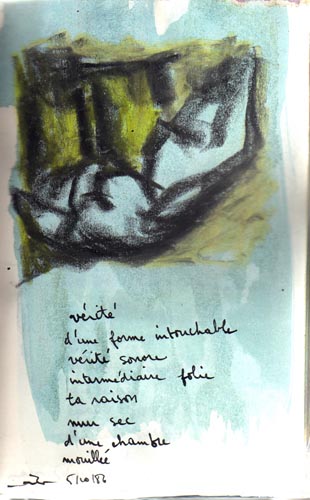 vérité
d'une forme intouchable
vérité sonore
intermédiaire folie
ta raison
mur sec
d'une chambre
mouillée
5/10/86